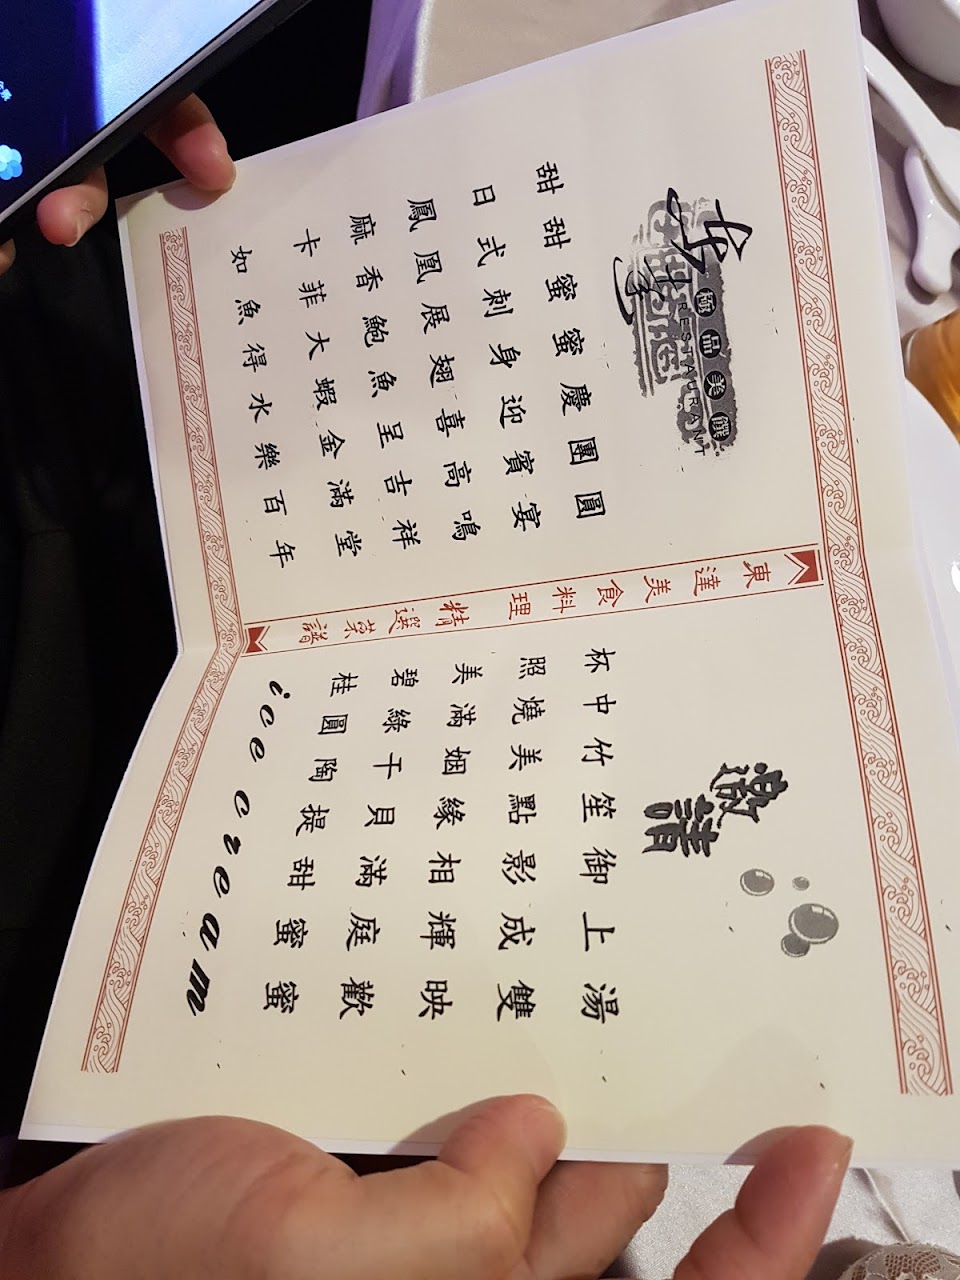 極品美饌
RESTAURANT
甜甜蜜蜜慶團圓
日式刺身迎賓宴
鳳凰展翅喜高鳴
麻香鮑魚呈吉祥
卡菲大蝦金滿堂
如魚得水樂百年
東達美食料理 精選菜譜
邀請
杯中竹笙御上湯
照燒美點影成雙
美滿姻緣相輝映
碧綠干貝滿庭歡
桂圓陶提甜蜜蜜
ice cream